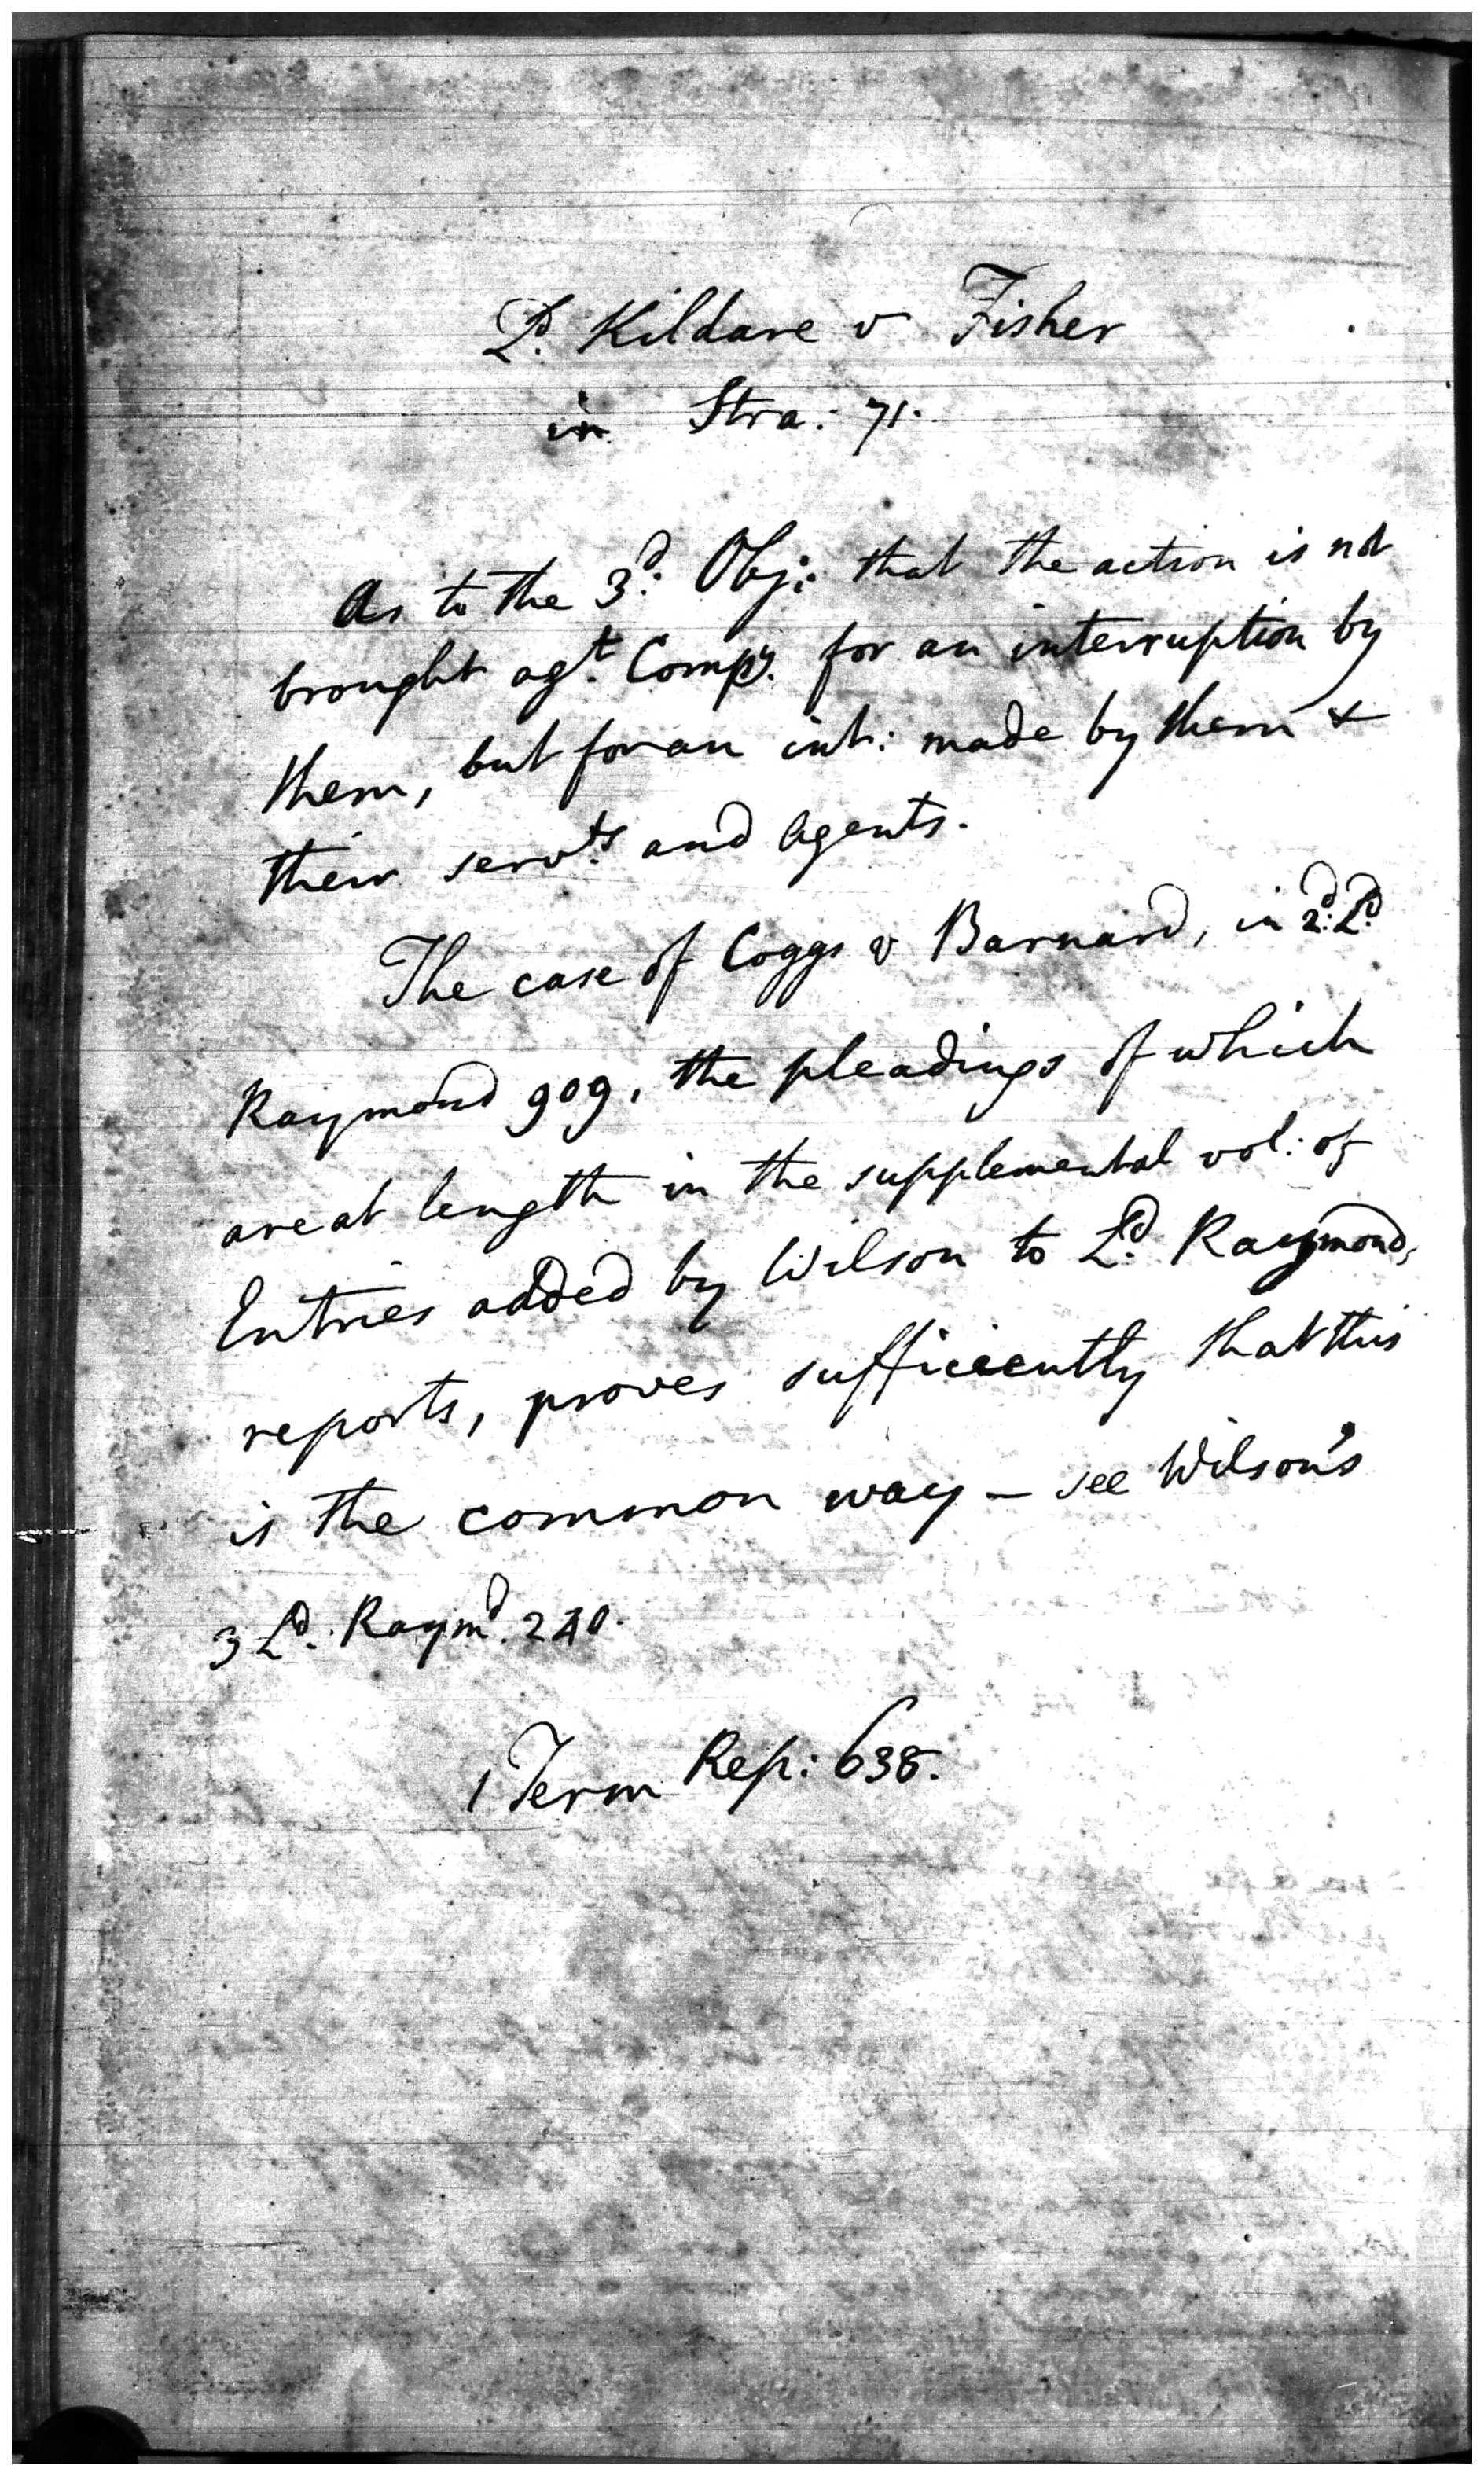 Ld. Kildare v Fisher
in Stra: 71.
As to the 3d: Obj: that the action is not
brought agt. Compy. for an interruption by
them, but for an int: made by them &
their servts. and Agents.
The case of Coggs v Barnard, in 2d: Ld.
Raymond 909, the pleadings of which
are at length in the supplemental vol: of
Entries added by Wilson to Ld. Raymond,
reports, proves sufficiently that this
is the common way - see Wilson's
3 Ld. Raymd. 240.
1 Term Rep: 638.